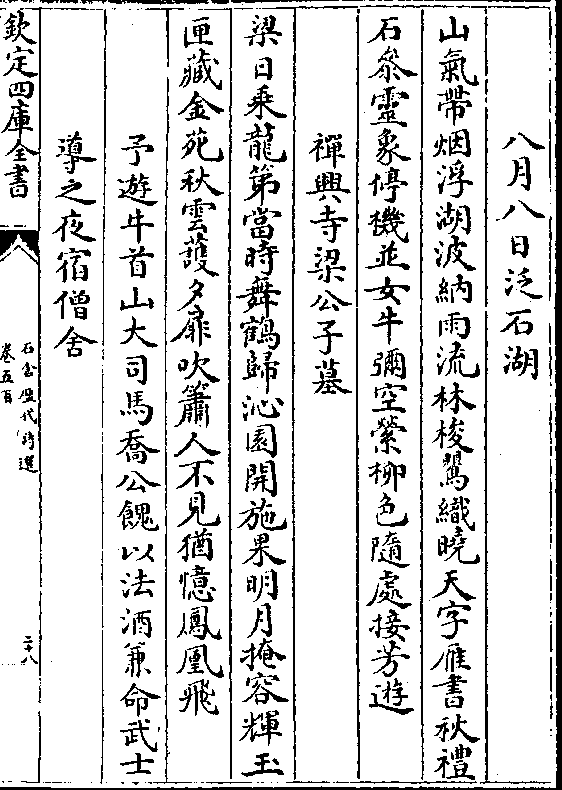 八月八日泛石湖
山氣帶烟浮湖波納雨流林梭鶯織曉天字雁書秋禮
石參靈象停機並女牛彌空縈柳色隨處接芳遊
禪興寺梁公子墓
梁日乘龍第當時舞鶴歸沁園開施果明月掩容輝玉
匣藏金苑秋雲護夕扉吹簫人不見猶憶鳳凰飛
予遊牛首山大司馬喬公餽以法酒兼命武士
導之夜宿僧舍
欽定四庫全書
石倉歷代詩選
卷五百
二十八